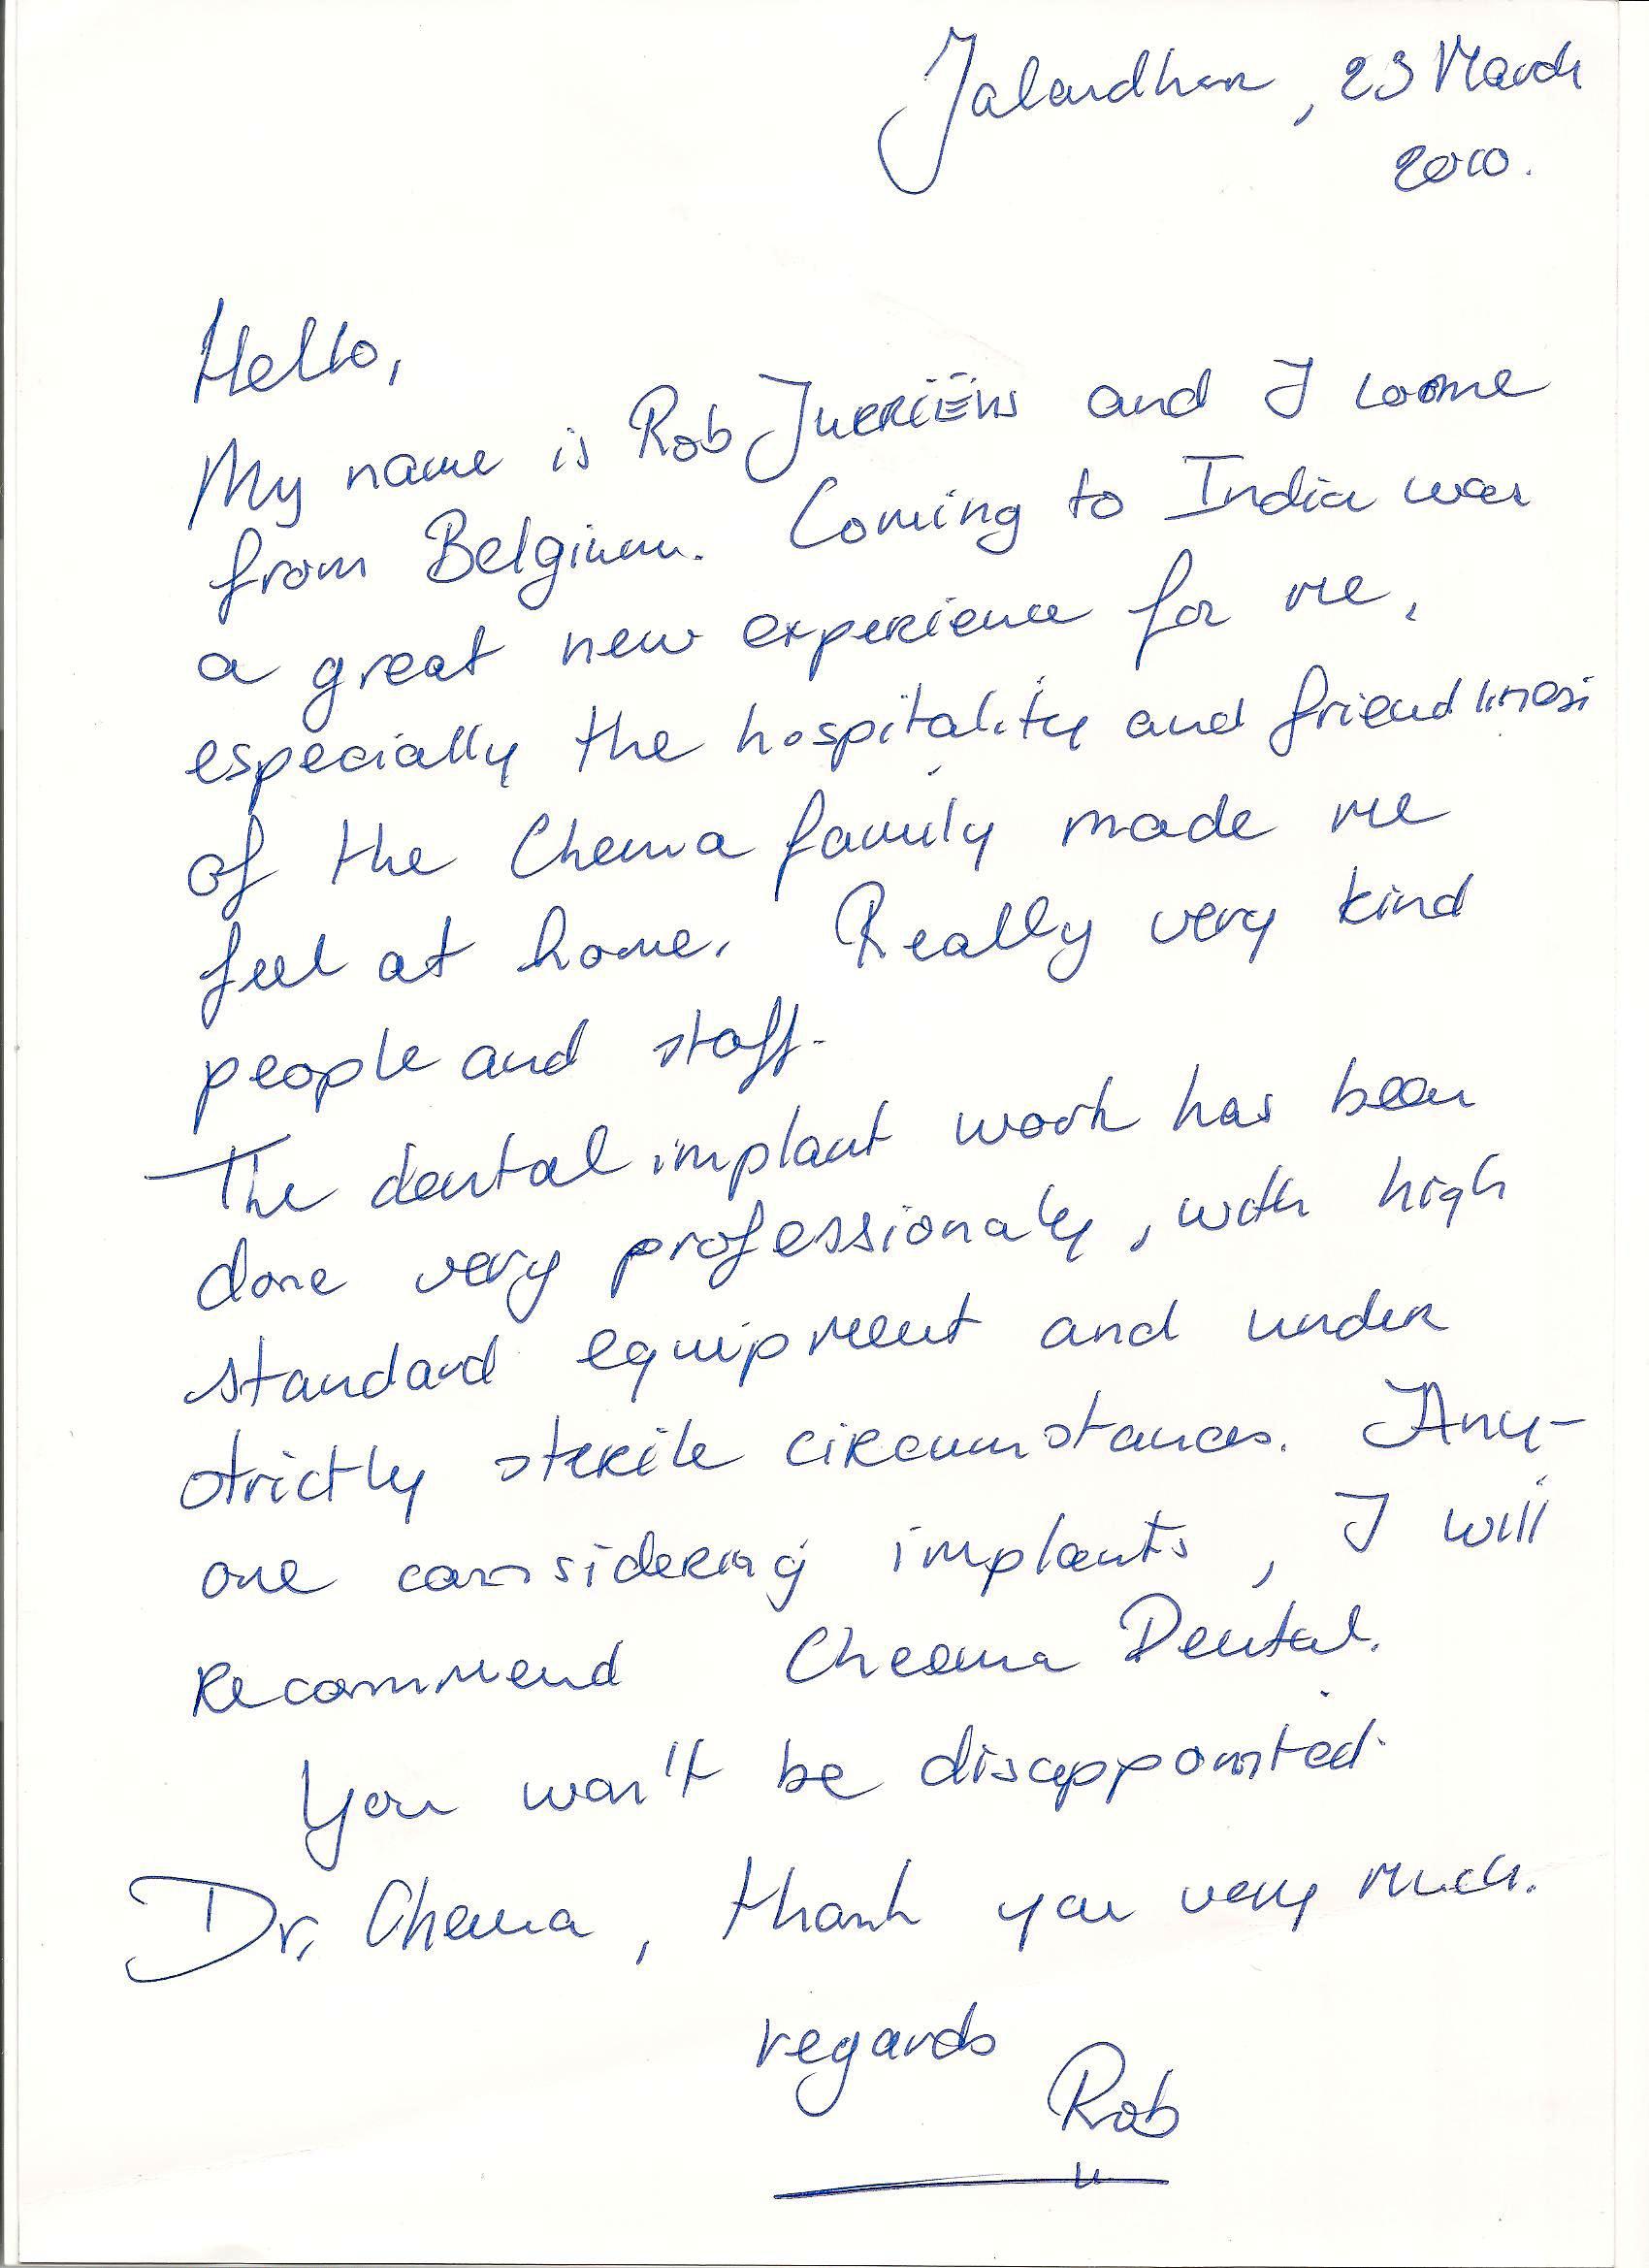 Jalandhar, 23 March
2010.
Hello,
My name is Rob Jurriëns and I come
from Belgium. Coming to India was
a great new experience for me,
especially the hospitality and friendliness
of the Chema family made me
feel at home. Really very kind
people and staff.
The dental implant work has been
done very professionaly, with high
standard equipment and under
strictly sterile circumstances. Any-
one considering implants, I will
recommend Cheema Dental.
You won't be disappointed.
Dr. Chema, thank you very much.
regards
Rob